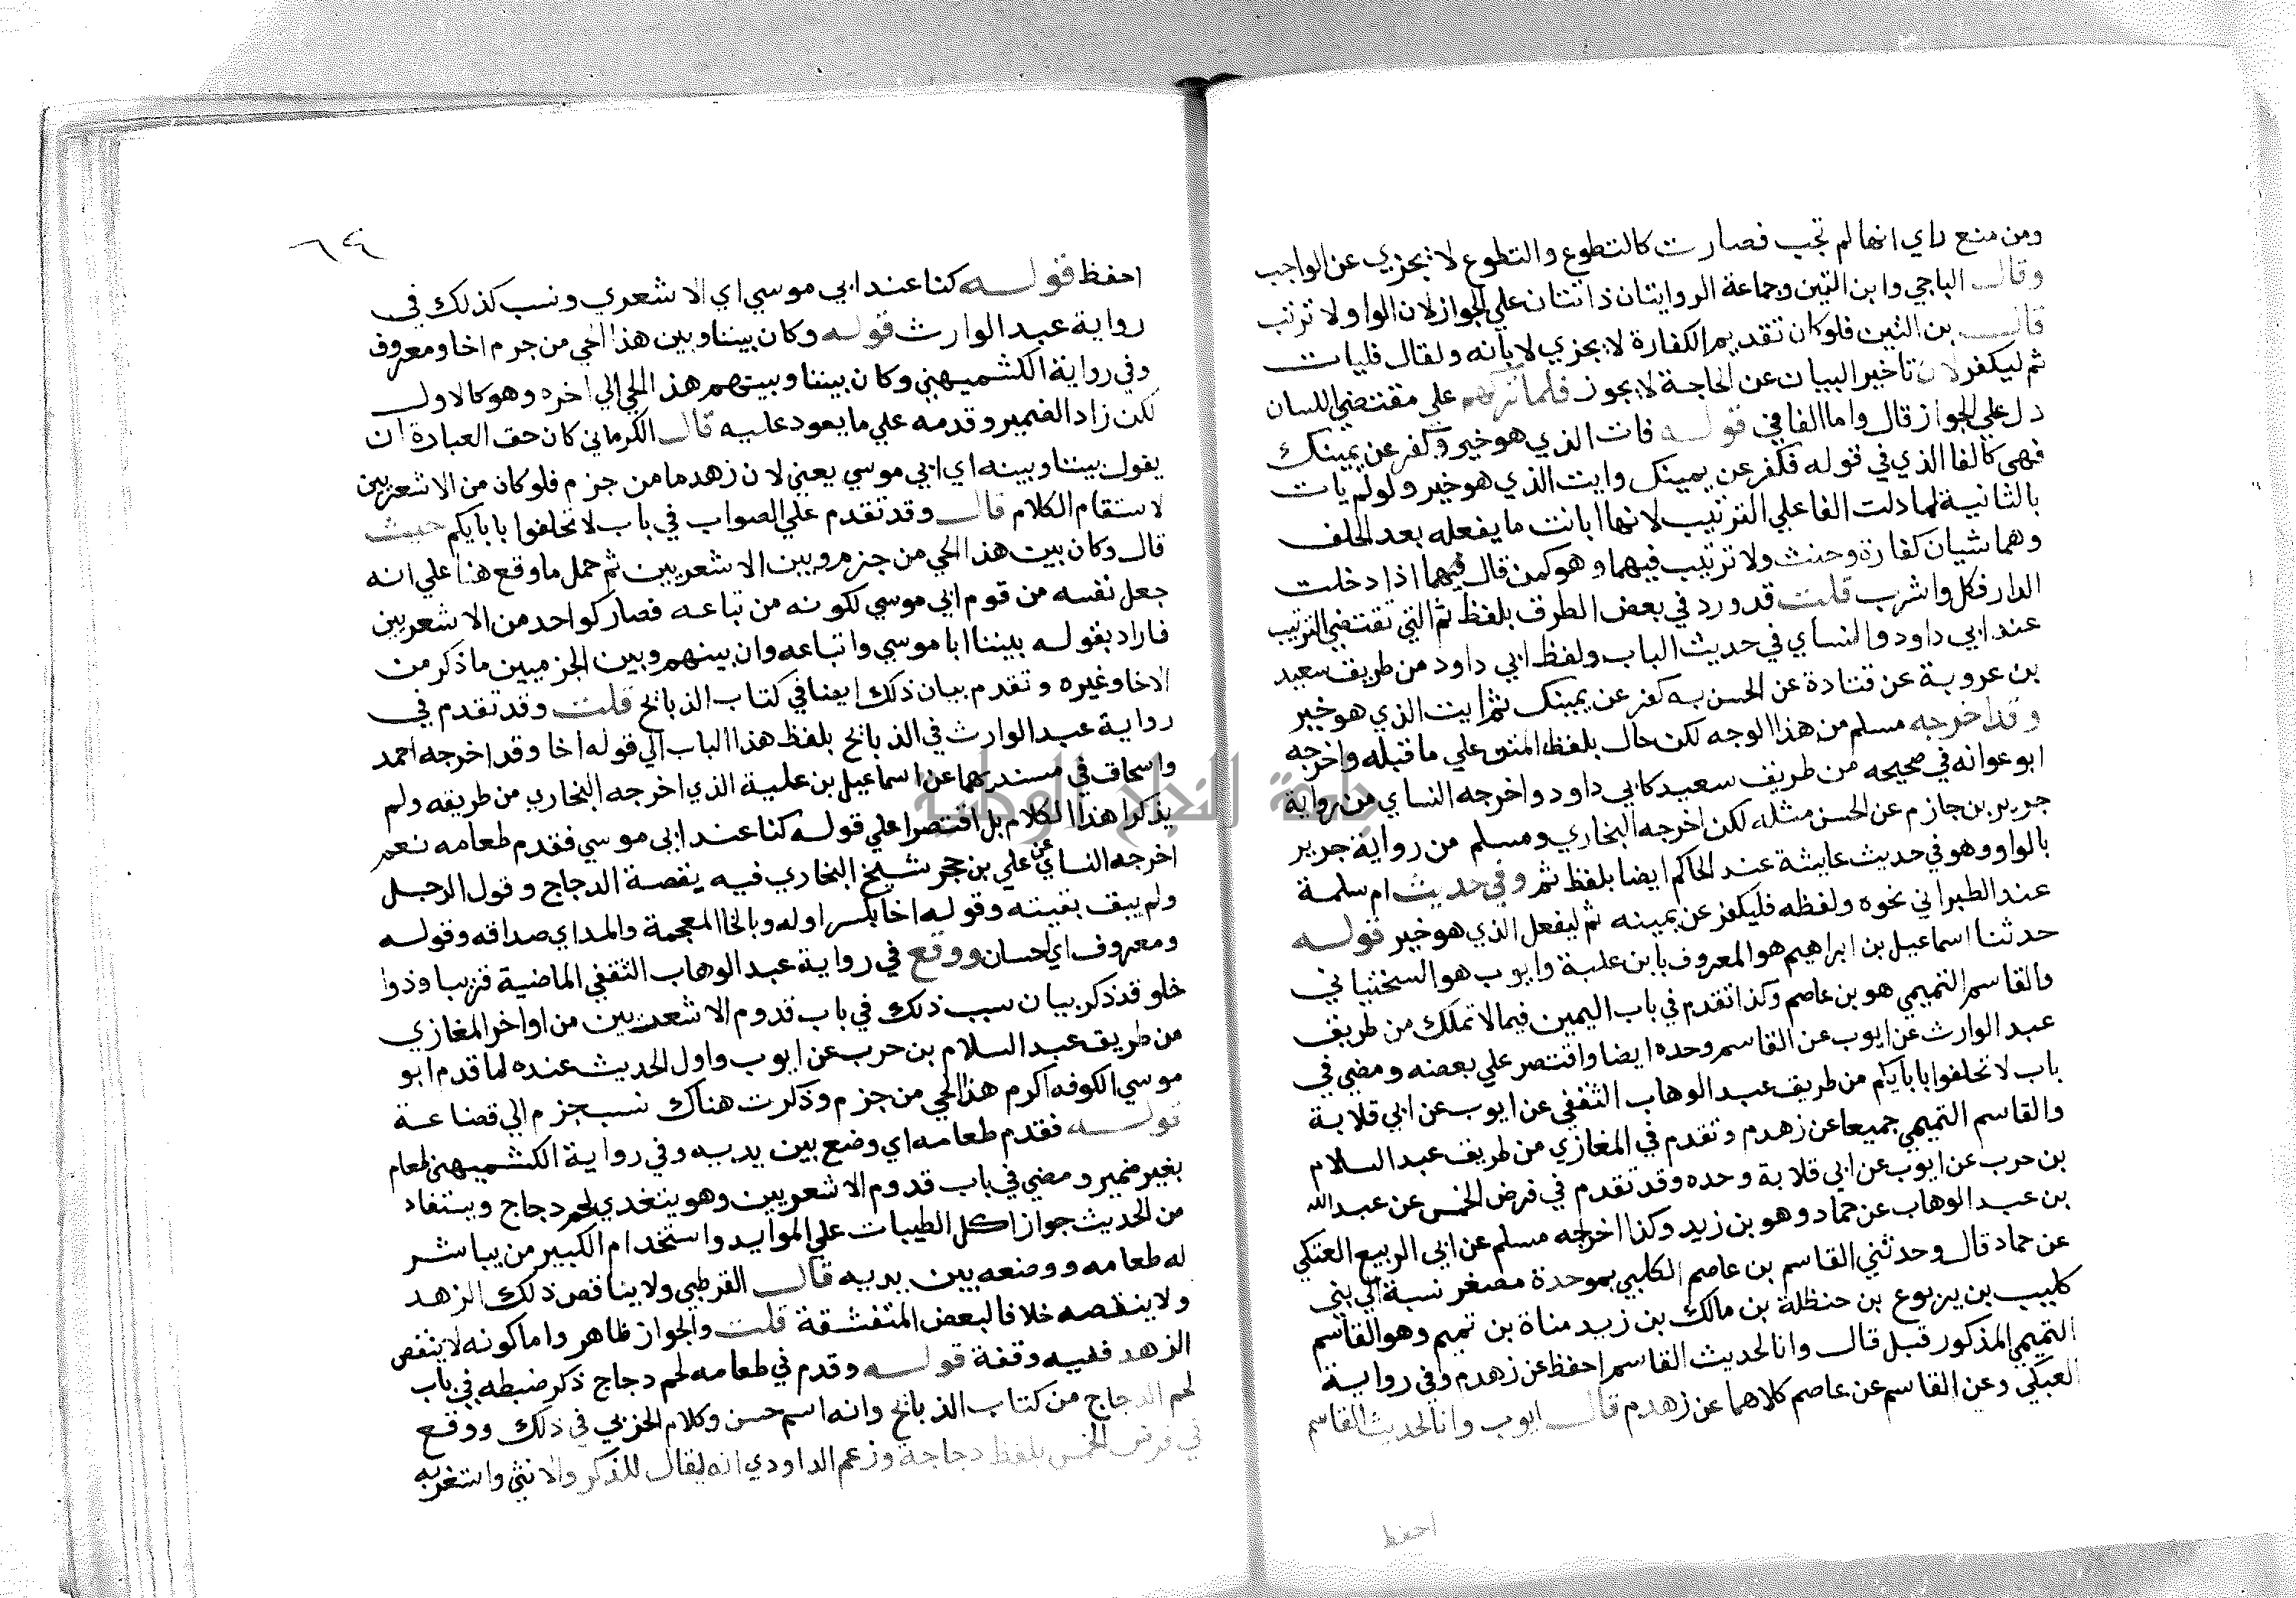 ومن منع راي انها لم تجب فصارت كالتطوع والتطوع لا يجزي عن الواجب
وقال الباجي وابن التين وجماعة الروايتان دالتان علي الجواز لان الواو لا ترتب
قال بن التين فلو كان تقديم الكفارة لا يجزي لابانه ولقال فليات
ثم ليكفر لان تاخير البيان عن الحاجة لا يجوز فلما تركهم علي مقتضي اللسان
دل علي الجواز قال واما الفا في قوله فات الذي هو خير وكفر عن يمينك
فهي كالفا الذي في قوله فكفر عن يمينك وايت الذي هو خير ولو لم يات
بالثانية لما دلت الفا علي الترتيب لانها ابانت ما يفعله بعد الحلف
وهما شيان كفارة وحنث ولا ترتيب فيهما وهو كمن قال فيهما اذا دخلت
الدار فكل واشرب قلت قد ورد في بعض الطرق بلفظ ثم التي تقتضي الترتيب
عند ابي داود والنساي في حديث الباب ولفظ ابي داود من طريق سعيد
بن عروبة عن قتادة عن الحسن به كفر عن يمينك ثم ايت الذي هو خير
وقد اخرجه مسلم من هذا الوجه لكن حال بلفظ المتن علي ما قبله واخرجه
ابو عوانه في صحيحه من طريق سعيد كابي داود واخرجه النساي من رواية
جرير بن حازم عن الحسن مثله لكن اخرجه البخاري ومسلم من رواية جرير
بالواو وهو في حديث عايشة عند الحاكم ايضا بلفظ ثم وفي حديث ام سلمة
عند الطبراني نحوه ولفظه فليكفر عن يمينه ثم ليفعل الذي هو خير قوله
حدثنا اسماعيل بن ابراهيم هو المعروف بابن علية وايوب هو السختياني
والقاسم التميمي هو بن عاصم وكذا تقدم في باب اليمين فيما لا تملك من طريق
عبد الوارث عن ايوب عن القاسم وحده ايضا واقتصر علي بعضه ومضي في
باب لا تحلفوا بابايكم من طريق عبد الوهاب الثقفي عن ايوب عن ابي قلابة
والقاسم التميمي جميعا عن زهدم وتقدم في المغازي من طريق عبد السلام
بن حرب عن ايوب عن ابي قلابة وحده وقد تقدم في فرض الخمس عن عبد الله
بن عبد الوهاب عن حماد وهو بن زيد وكذا اخرجه مسلم عن ابي الربيع العتكي
عن حماد قال وحدثني القاسم بن عاصم الكليبي بموحدة مصغر نسبة الي بني
كليب بن يربوع بن حنظلة بن مالك بن زيد مناة بن تميم وهو القاسم
التميمي المذكور قبل قال وانا لحديث القاسم احفظ عن زهدم وفي رواية
العتكي وعن القاسم عن عاصم كلاهما عن زهدم قال ايوب وانا لحديث القاسم
احفظ
٦٤
احفظ قوله كنا عند ابي موسي اي الاشعري ونسب كذلك في
رواية عبد الوارث قوله وكان بيننا وبين هذا الحي من جرم اخا ومعروف
وفي رواية الكشميهني وكان بيننا وبينهم هذا الحي الي اخره وهو كالاول
لكن زاد الضمير وقدمه علي ما يعود عليه قال الكرماني كان حق العبارة ان
يقول بيننا وبينه اي ابي موسي يعني لان زهدما من جرم فلو كان من الاشعريين
لاستقام الكلام قال وقد تقدم علي الصواب في باب لا تحلفوا بابايكم حيث
قال وكان بين هذا الحي من جرم وبين الاشعريين ثم حمل ما وقع هنا علي انه
جعل نفسه من قوم ابي موسي لكونه من تباعه فصار كواحد من الاشعريين
فاراد بقوله بيننا ابا موسي واتباعه وان بينهم وبين الجرميين ما ذكر من
الاخا وغيره وتقدم بيان ذلك ايضا في كتاب الذبائح قلت وقد تقدم في
رواية عبد الوارث في الذبائح بلفظ هذا الباب الي قوله اخا وقد اخرجه احمد
واسحاق في مسنديهما عن اسماعيل بن علية الذي اخرجه البخاري من طريقه ولم
يذكرا هذا الكلام بل اقتصرا علي قوله كنا عند ابي موسي فقدم طعامه نعم
اخرجه النساي عن علي بن حجر شيخ البخاري فيه بقصة الدجاج وقول الرجل
ولم يبق بقيته وقوله اخا بكسر اوله وبالخا المعجمة والمد اي صداقه وقوله
ومعروف اي احسان ووقع في رواية عبد الوهاب الثقفي الماضية قريبا ود وا
خا وقد ذكر بيان سبب ذلك في باب قدوم الاشعريين من اواخر المغازي
من طريق عبد السلام بن حرب عن ايوب واول الحديث عنده لما قدم ابو
موسي الكوفه اكرم هذا الحي من جرم وذكرت هناك نسب جرم الي قضاعة
قوله فقدم طعامه اي وضع بين يديه وفي رواية الكشميهني طعام
بغير ضمير ومضي في باب قدوم الاشعريين وهو يتغدي لحم دجاج ويستفاد
من الحديث جواز اكل الطيبات علي الموايد واستخدام الكبير من يباشر
له طعامه ووضعه بين يديه قال القرطبي ولا يناقض ذلك الزهد
ولا ينقصه خلافا لبعض المتقشفة قلت والجواز ظاهر واما كونه لا ينقص
الزهد ففيه وقفة قوله وقدم في طعامه لحم دجاج ذكر ضبطه في باب
لحم الدجاج من كتاب الذبائح وانه اسم حسن وكلام الحربي في ذلك ووقع
في فرض الخمس بلفظ دجاجة وزعم الداودي انه يقال للذكر والانثي واستغربه
جامعة النجاح الوطنية